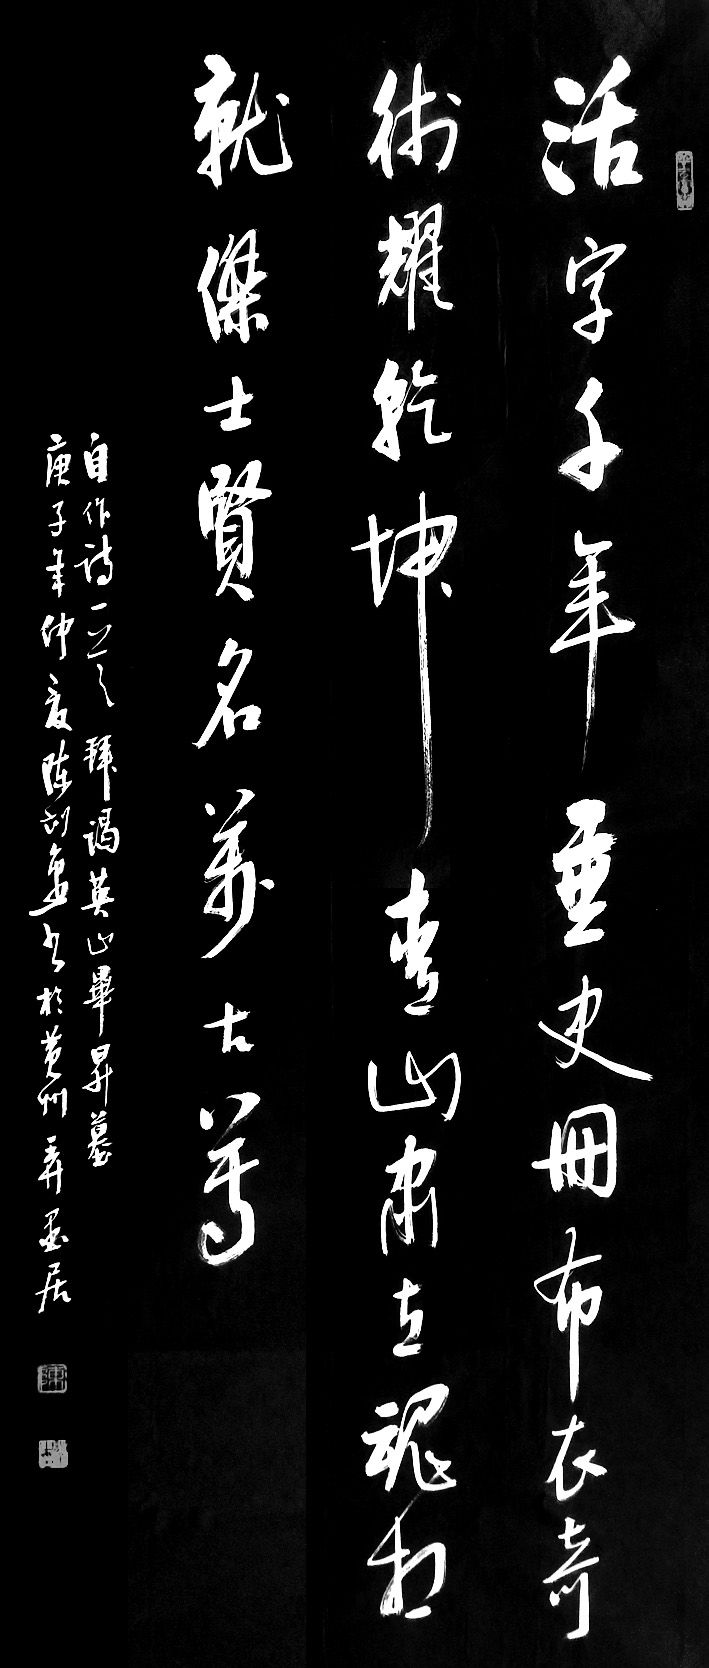 活字千年垂史冊布衣奇
術耀乾坤青山肅立魂相
就傑士賢名萬古尊
自作詩一首拜謁英山畢昇墓
庚子年仲夏陳書於黃州弄墨居